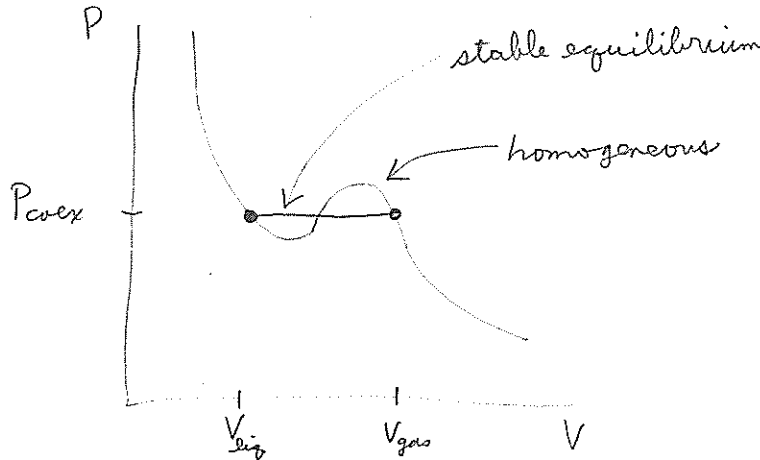 P
stable equilibrium
homogeneous
Pcoex
Vliq
Vgas
V